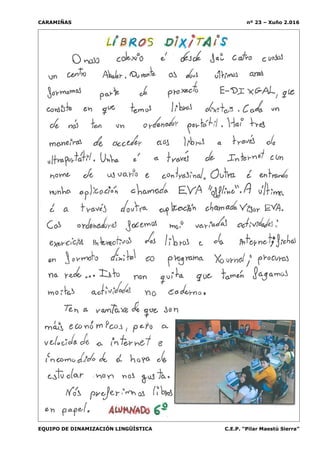 CARAMIÑAS nº 23 – Xuño 2.016
LIBROS DIXITAIS
O noso colexio é desde hai catro cursos
un centro Abalar. Durante os dous últimos anos
formamos parte do proxecto E-DIXGAL, que
consiste en que temos libros dixitais. Cada un
de nós ten un ordenador portátil. Hai tres
maneiras de acceder aos libros a través do
ultraportátil. Unha é a través de Internet cun
nome de usuario e contrasinal. Outra é entrando
nunha aplicación chamada EVA "offline". A última
é a través doutra aplicación chamada Visor EVA.
Cos ordenadores facemos moi variadas actividades:
exercicios interactivos dos libros e da internet, fichas
en formato dixital co programa Xournal, procuras
na rede... Isto non quita que tamén fagamos
moitas actividades no caderno.
Ten a vantaxe de que son
máis económicos, pero a
velocidade a internet e
incomodidade á hora de
estudar non nos gusta.
Nós preferimos libros
en papel. ALUMNADO 6º
EQUIPO DE DINAMIZACIÓN LINGÜÍSTICA C.E.P. "Pilar Maestú Sierra"